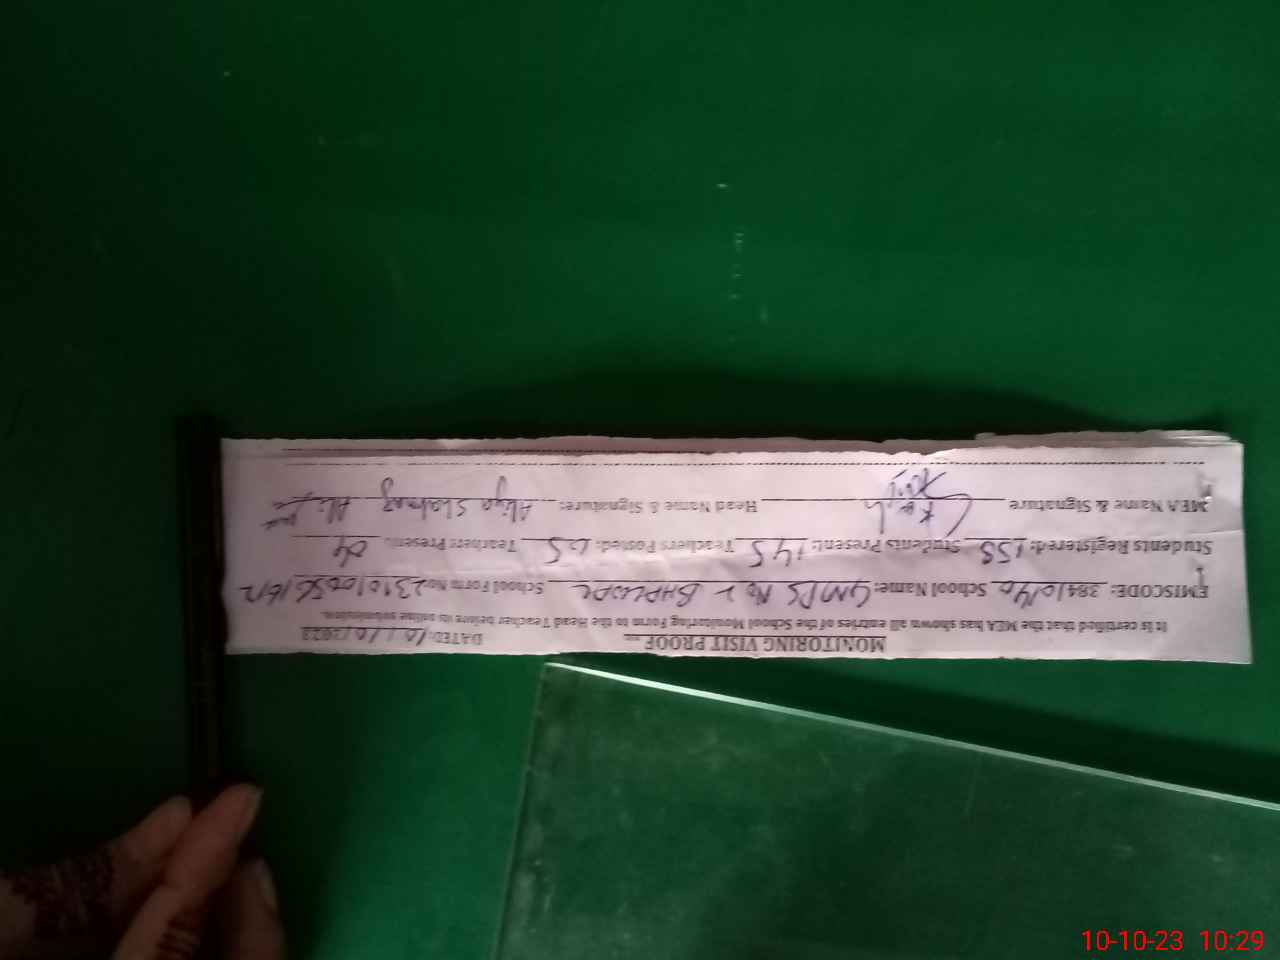 MONITORING VISIT PROOF DATED: 10/10/2023
It is certified that the MEA has shown all entries of the School Monitoring Form to the Head Teacher before its online submission.
EMISCODE: 38410140 School Name: GMPS No 2 School Form No:
Students Registered: 155 Students Present: 145 Teachers Posted: 05 Teachers Present: 04
MEA Name & Signature Head Name & Signature: Aliya Shahnaz
10-10-23 10:29